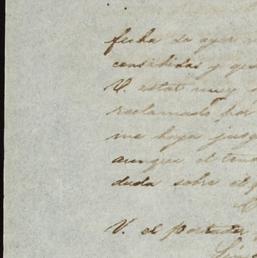 fecha de ayer
consibidas y que
V. estat muy
reclamado por
me haya juzg
aunque el ten
duda sobre el
V. el portador